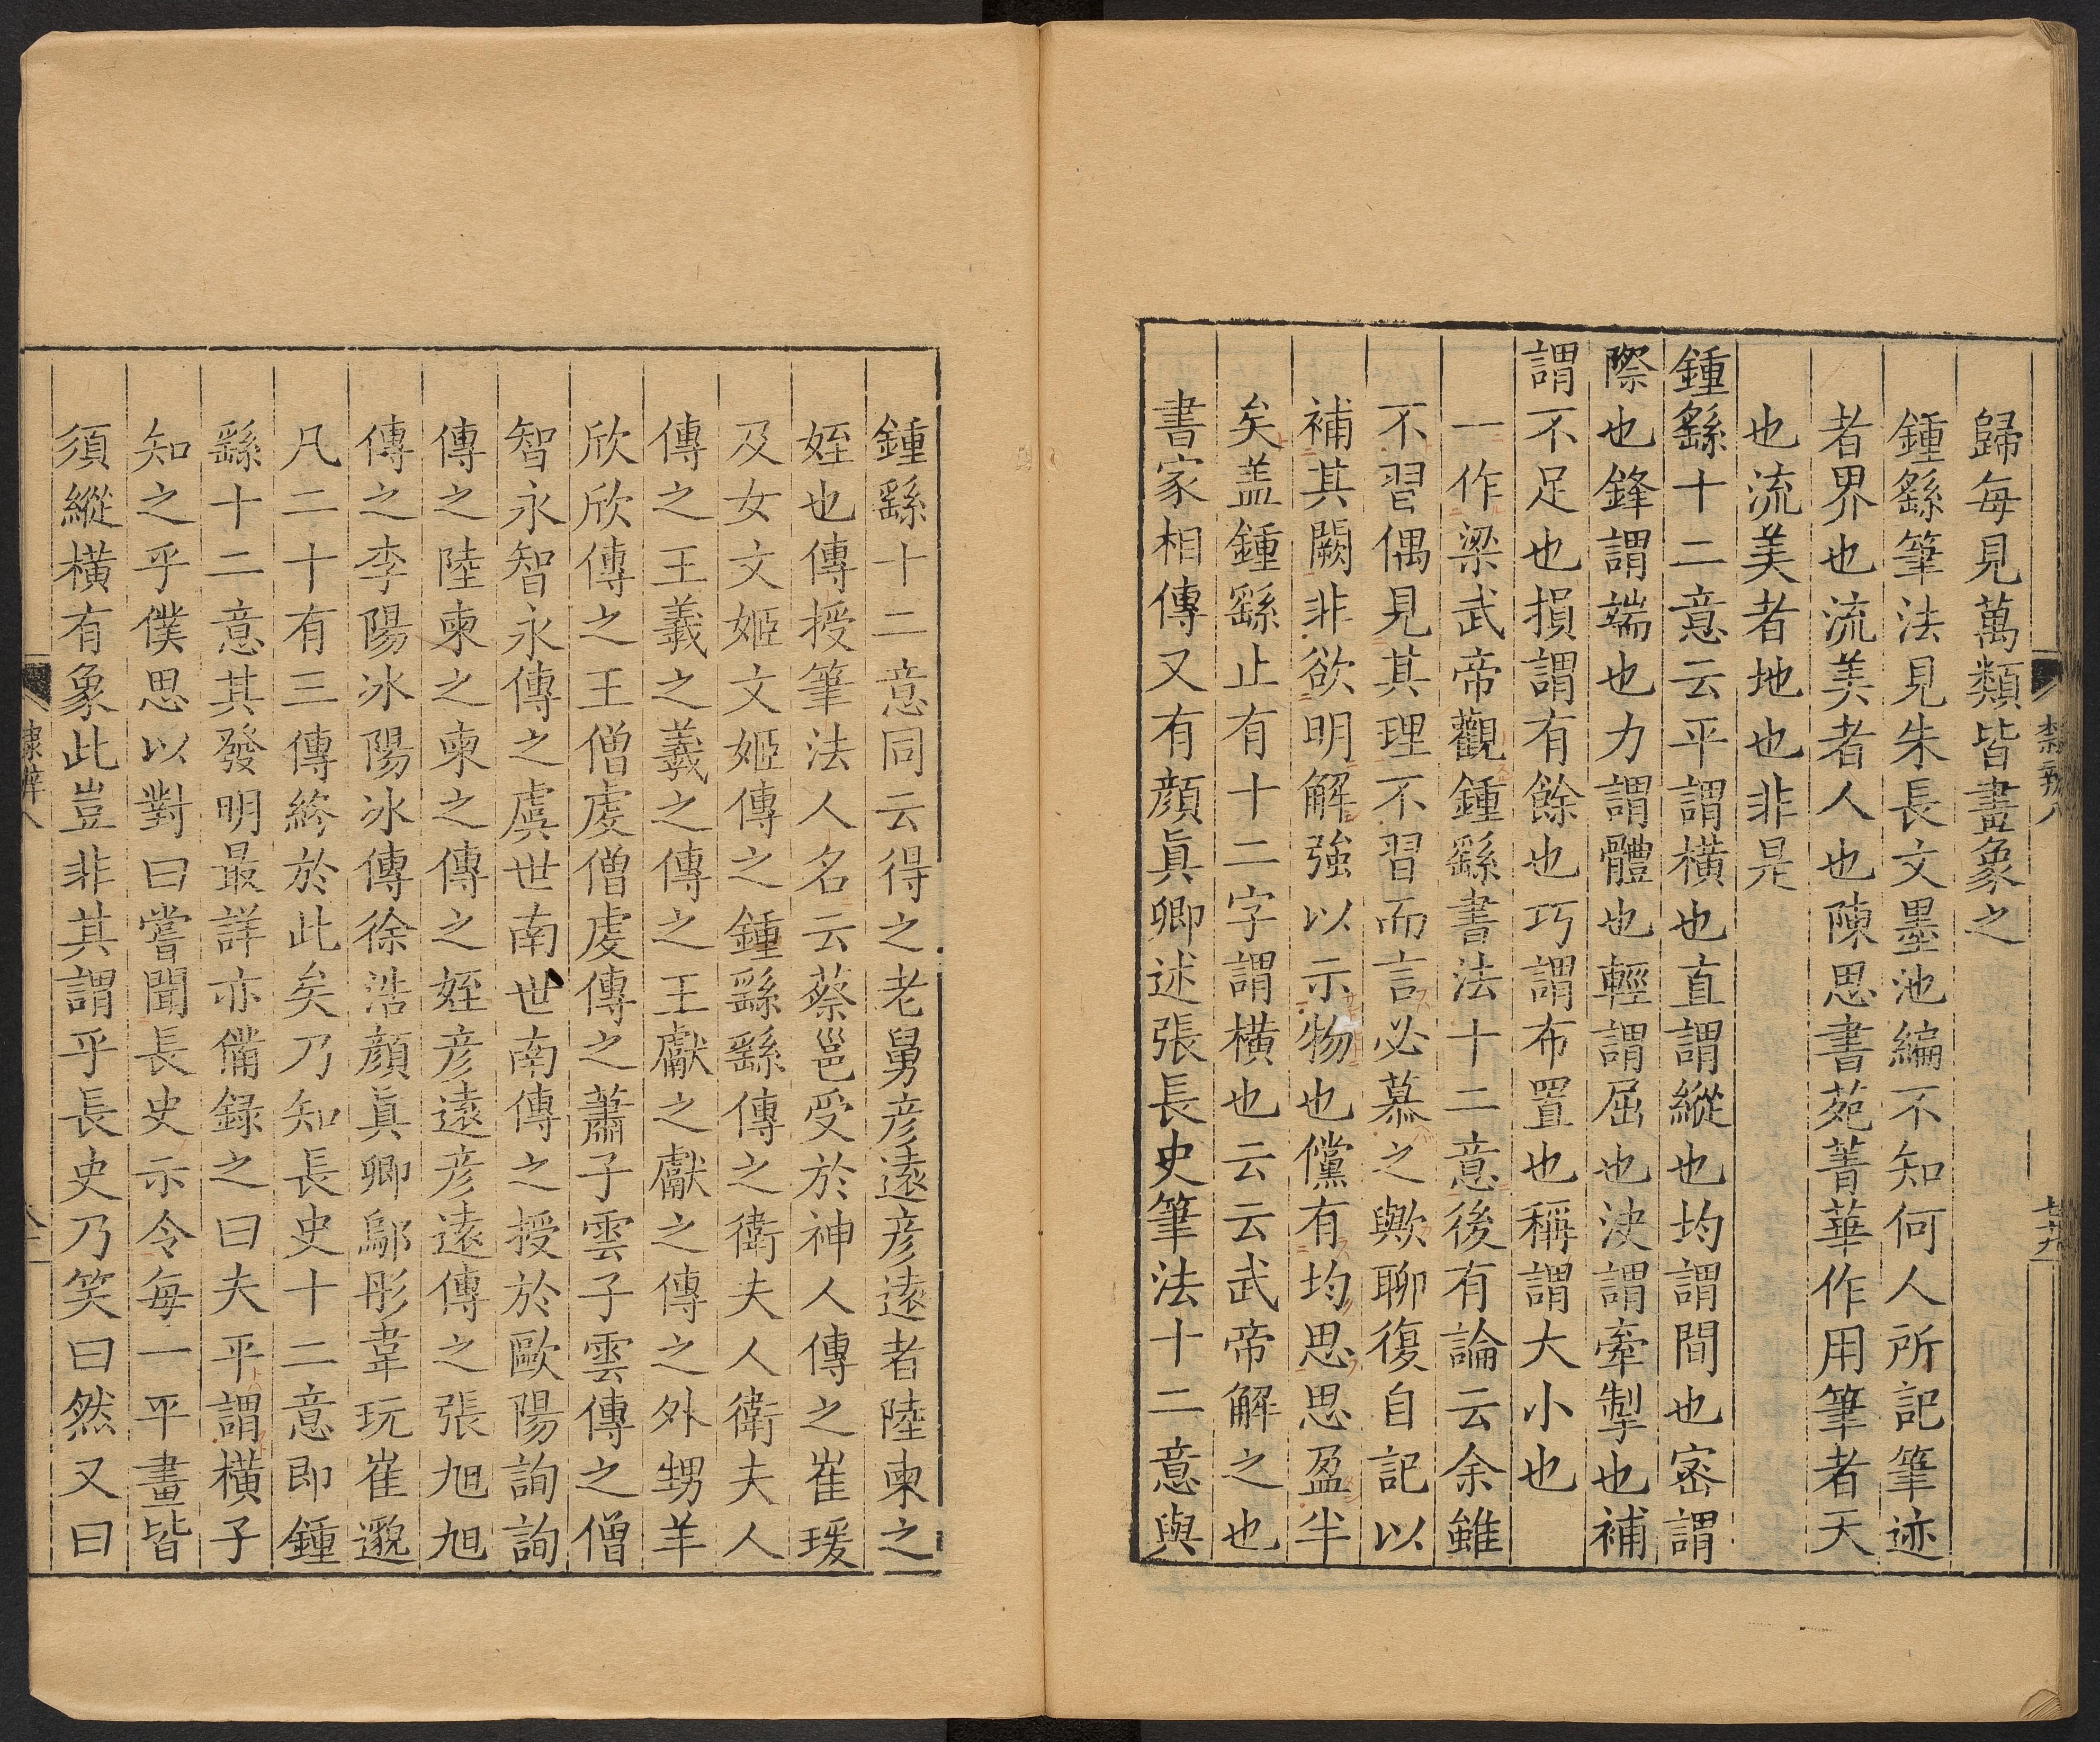 隸辨八
七九
歸每見萬類皆畫象之
鍾繇筆法見朱長文墨池編不知何人所記筆迹
者界也流美者人也陳思書苑菁華作用筆者天
也流美者地也非是
鍾繇十二意云平謂橫也直謂縱也均謂間也密謂
際也鋒謂端也力謂體也輕謂屈也決謂牽掣也補
謂不足也損謂有餘也巧謂布置也稱謂大小也
一作梁武帝觀鍾繇書法十二意後有論云余雖
不習偶見其理不習而言必慕之歟聊復自記以
補其闕非欲明解強以示物也儻有均思思盈半
矣盖鍾繇止有十二字謂橫也云云武帝解之也
書家相傳又有顔眞卿述張長史筆法十二意與
鍾繇十二意同云得之老舅彥遠彥遠者陸柬之
姪也傳授筆法人名云蔡邕受於神人傳之崔瑗
及女文姬文姬傳之鍾繇繇傳之衛夫人衛夫人
傳之王羲之羲之傳之王獻之獻之傳之外甥羊
欣欣傳之王僧虔僧虔傳之蕭子雲子雲傳之僧
智永智永傳之虞世南世南傳之授於歐陽詢詢
傳之陸柬之柬之傳之姪彥遠彥遠傳之張旭旭
傳之李陽冰陽冰傳徐浩顔眞卿鄔彤韋玩崔邈
凡二十有三傳終於此矣乃知長史十二意即鍾
繇十二意其發明最詳亦備録之曰夫平謂橫子
知之乎僕思以對曰嘗聞長史示令每一平畫皆
須縱橫有象此豈非其謂乎長史乃笑曰然又曰
隸辨八